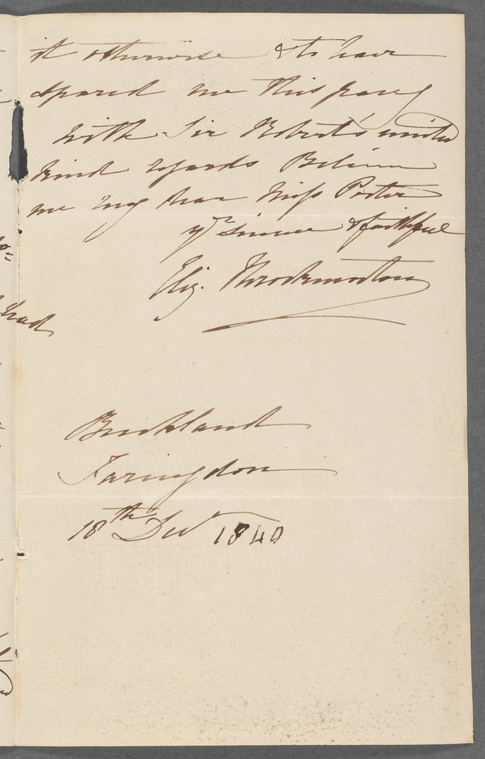 it otherwise & to have
spared me this pang
with Sir Robert's united
kind regards Believe
me my dear Miss Porter
yr sincere & faithful
Eliz. Throckmorton
Buckland
Faringdon
18th Decr 1840